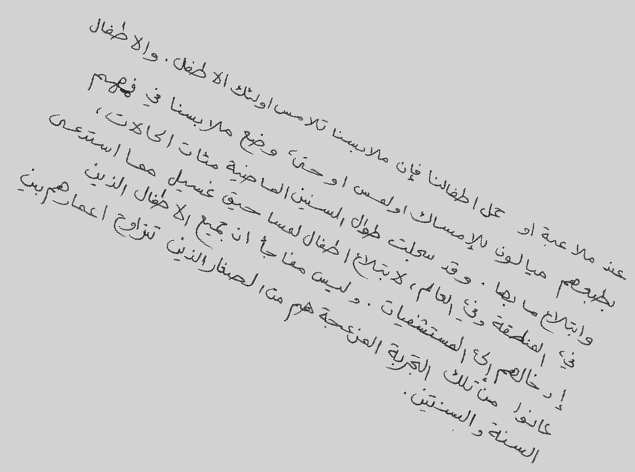 عند ملاعبة او حمل اطفالنا فإن ملابسنا تلامس اولئك الاطفال. والاطفال
بطبعهم ميالون للإمساك او لمس او حتى، وضع ملابسنا في فمهم
وابتلاع ما بها. وقد سجلت طوال السنين الماضية مئات الحالات،
في المنطقة وفي العالم، لابتلاع اطفال لمساحيق غسيل مما استدعى
إدخالهم إلى المستشفيات. وليس مفاجأ ان جميع الاطفال الذين
عانوا من تلك التجربة المزعجة هم من الصغار الذين تتراوح اعمارهم بين
السنة والسنتين.